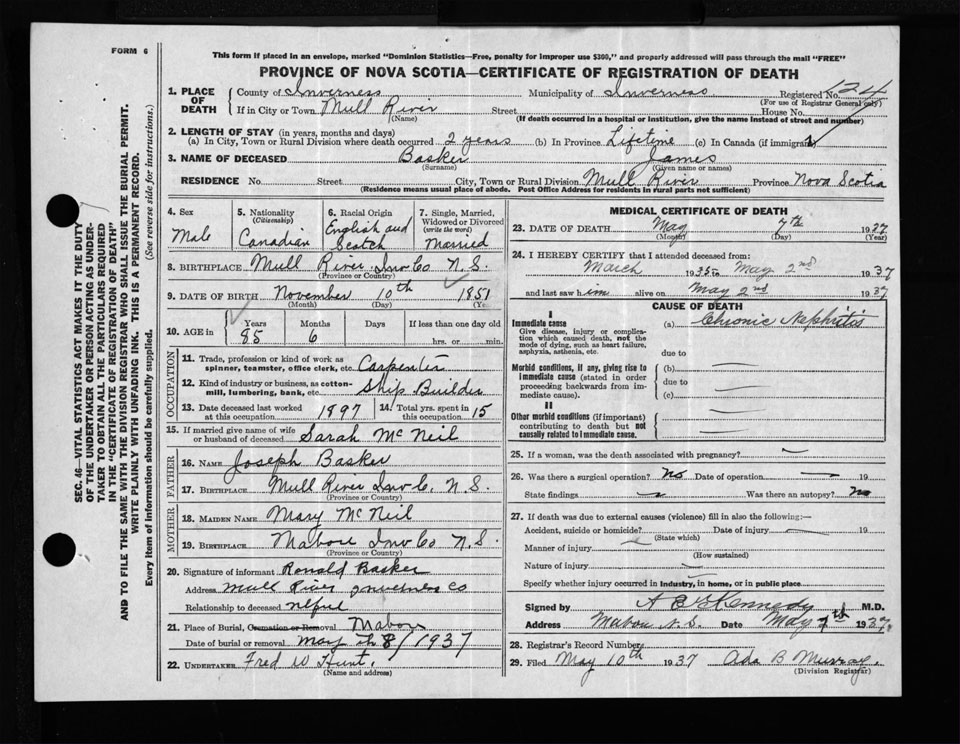 FORM 6
This form if placed in an envelope, marked "Dominion Statistics—Free, penalty for improper use $300," and properly addressed will pass through the mail "FREE"
PROVINCE OF NOVA SCOTIA—CERTIFICATE OF REGISTRATION OF DEATH
SEC. 46—VITAL STATISTICS ACT MAKES IT THE DUTY
OF THE UNDERTAKER OR PERSON ACTING AS UNDER-
TAKER TO OBTAIN ALL THE PARTICULARS REQUIRED
IN THE "CERTIFICATE OF REGISTRATION OF DEATH"
AND TO FILE THE SAME WITH THE DIVISION REGISTRAR WHO SHALL ISSUE THE BURIAL PERMIT.
WRITE PLAINLY WITH UNFADING INK. THIS IS A PERMANENT RECORD.
Every item of information should be carefully supplied. (See reverse side for instructions.)
1. PLACE OF DEATH County of Inverness Municipality of Inverness Registered No. 124
(For use of Registrar General only)
If in City or Town Mull River Street House No.
(Name) (If death occurred in a hospital or institution, give the name instead of street and number)
2. LENGTH OF STAY (in years, months and days)
(a) In City, Town or Rural Division where death occurred 2 years (b) In Province Lifetime (c) In Canada (if immigrant)
3. NAME OF DECEASED Basker James
(Surname) (Given name or names)
RESIDENCE No. Street City, Town or Rural Division Mull River Province Nova Scotia
(Residence means usual place of abode. Post Office Address for residents in rural parts not sufficient)
4. Sex Male
5. Nationality (Citizenship) Canadian
6. Racial Origin English and Scotch
7. Single, Married, Widowed or Divorced (write the word) Married
8. BIRTHPLACE Mull River Inv Co N.S.
(Province or Country)
9. DATE OF BIRTH November 10th 1851
(Month) (Day)
10. AGE in Years Months Days If less than one day old
85 6 hrs. or min.
OCCUPATION
11. Trade, profession or kind of work as spinner, teamster, office clerk, etc. Carpenter
12. Kind of industry or business, as cotton-mill, lumbering, bank, etc. Ship Builder
13. Date deceased last worked at this occupation 1897 14. Total yrs. spent in 15
15. If married give name of wife or husband of deceased Sarah McNeil
FATHER
16. NAME Joseph Basker
17. BIRTHPLACE Mull River Inv C. N.S.
(Province or Country)
MOTHER
18. MAIDEN NAME Mary McNeil
19. BIRTHPLACE Mabou Inv Co N.S.
(Province or Country)
20. Signature of informant Ronald Basker
Address Mull River Inverness Co
Relationship to deceased
21. Place of Burial, Cremation or Removal Mabou
Date of burial or removal May th 8/1937
22. UNDERTAKER Fred W Hunt.
(Name and address)
MEDICAL CERTIFICATE OF DEATH
23. DATE OF DEATH May 7th 1937
(Month) (Day) (Year)
24. I HEREBY CERTIFY that I attended deceased from:
March 1935 to May 2nd 1937
and last saw him alive on May 2nd 1937
CAUSE OF DEATH
I
Immediate cause
Give disease, injury or complication which caused death, not the mode of dying, such as heart failure, asphyxia, asthenia, etc.
(a) Chronic Nephritis
due to
Morbid conditions, if any, giving rise to immediate cause (stated in order proceeding backwards from immediate cause).
(b)
due to
(c)
II
Other morbid conditions (if important) contributing to death but not causally related to immediate cause.
25. If a woman, was the death associated with pregnancy?
26. Was there a surgical operation? No Date of operation 19
State findings Was there an autopsy? No
27. If death was due to external causes (violence) fill in also the following:—
Accident, suicide or homicide? Date of injury 19
(State which)
Manner of injury
(How sustained)
Nature of injury
Specify whether injury occurred in industry, in home, or in public place
Signed by Kennedy M.D.
Address Mabou N.S. Date May 7th 1937
28. Registrar's Record Number
29. Filed May 10th 1937 Ada B Murray.
(Division Registrar)